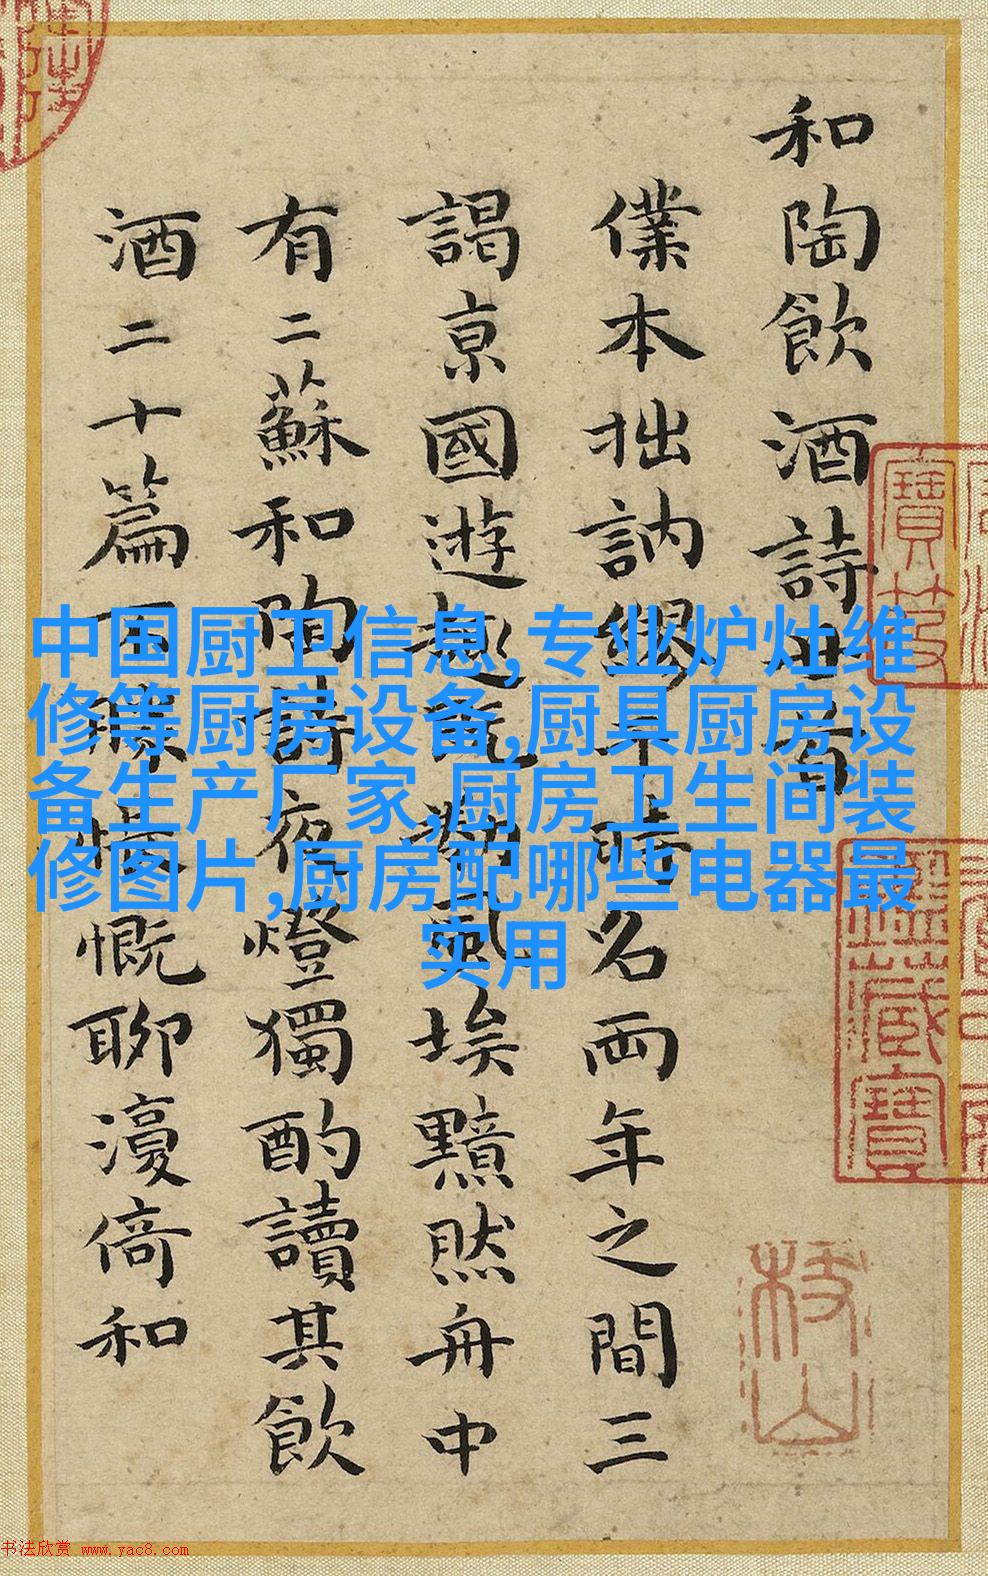 和陶飲酒詩
僕本拙訥繆干時名両年之間三
謁京國遊趣既氣埃黯然舟中
有二蘇和陶詩夜燈獨酌讀其飲
酒二十篇不勝悵慨聊濅倚和
中国厨卫信息,专业炉灶维
修等厨房设备,厨具厨房设
备生产厂家,厨房卫生间装
修图片,厨房配哪些电器最
实用
寶笈
藏寶
枝山
书法欣赏 www.yac8.com